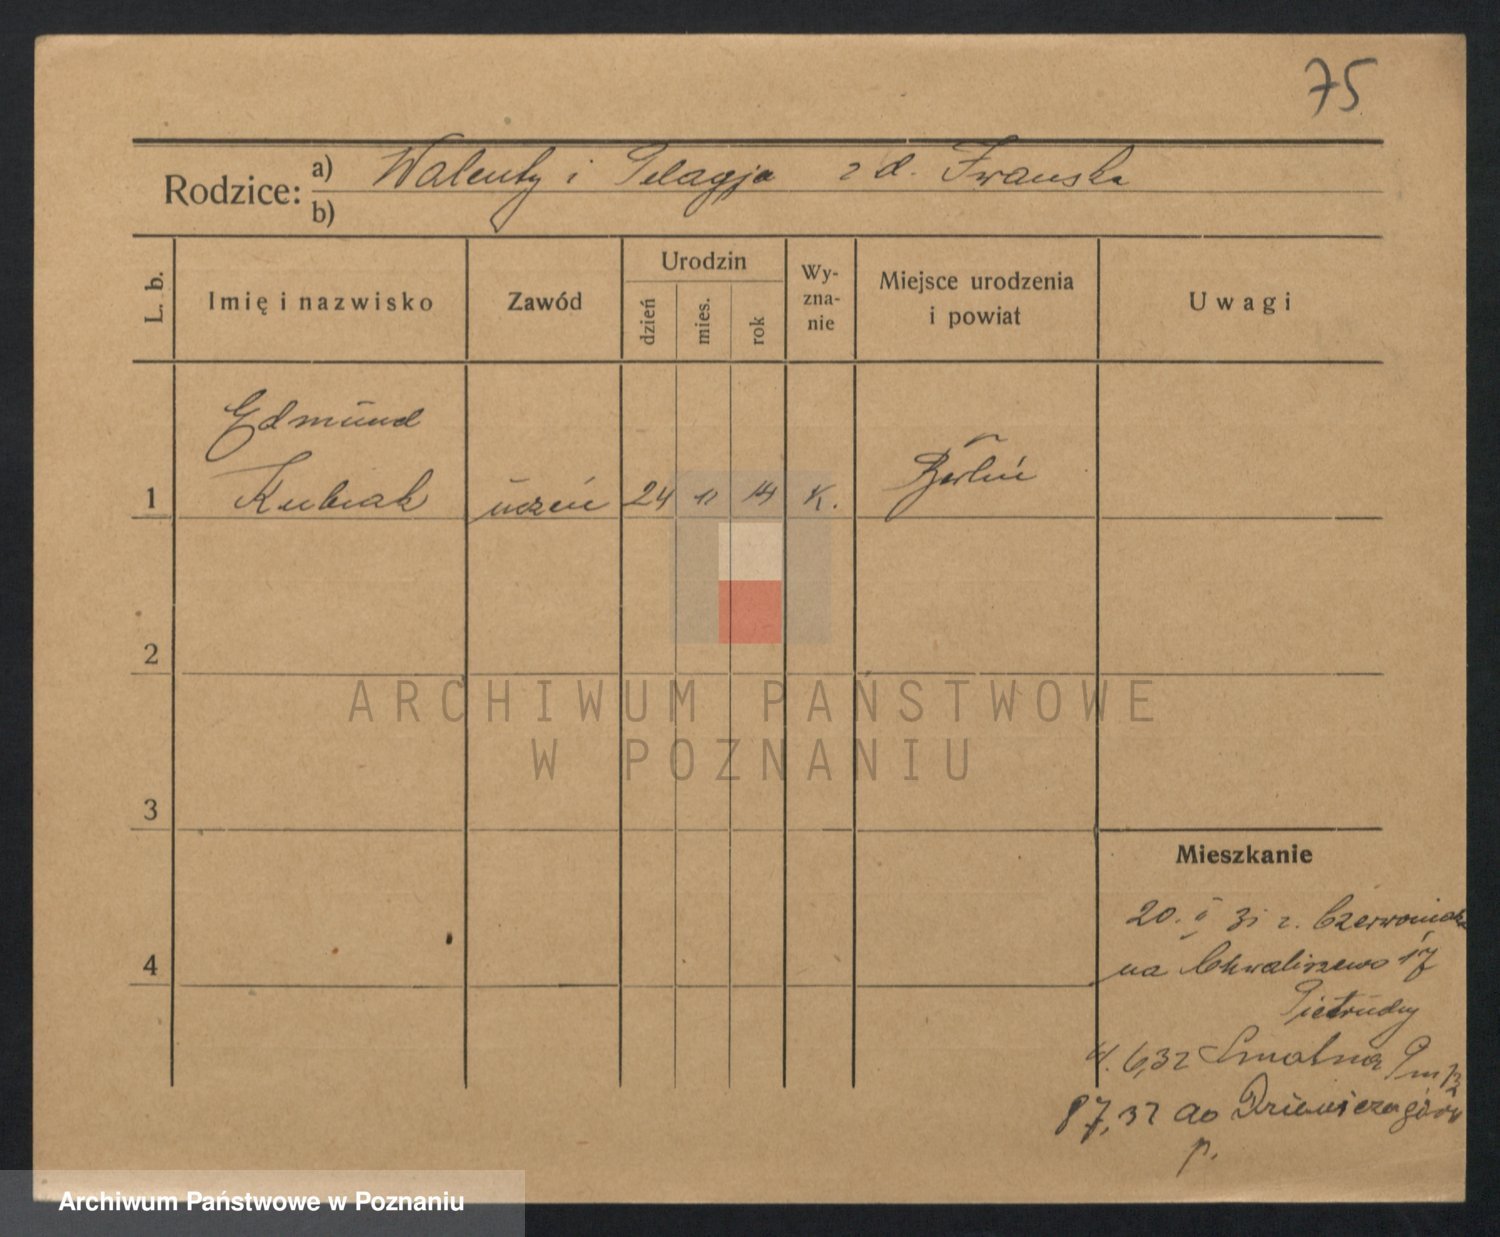 75
Rodzice: a) Walenty i Pelagja z d. Iwańska
b)
L. b.
Imię i nazwisko
Zawód
Urodzin
dzień
mies.
rok
Wy-
zna-
nie
Miejsce urodzenia
i powiat
Uwagi
Edmund
1 Kubiak uczeń 24 11 14 K. Berlin
2
ARCHIWUM PAŃSTWOWE
W POZNANIU
3
Mieszkanie
20. 31 z. Czerwonaka
4
na Chwaliszewo 17
Pietrudy
6,32 Smolna
8 7,32 do
p.
Archiwum Państwowe w Poznaniu